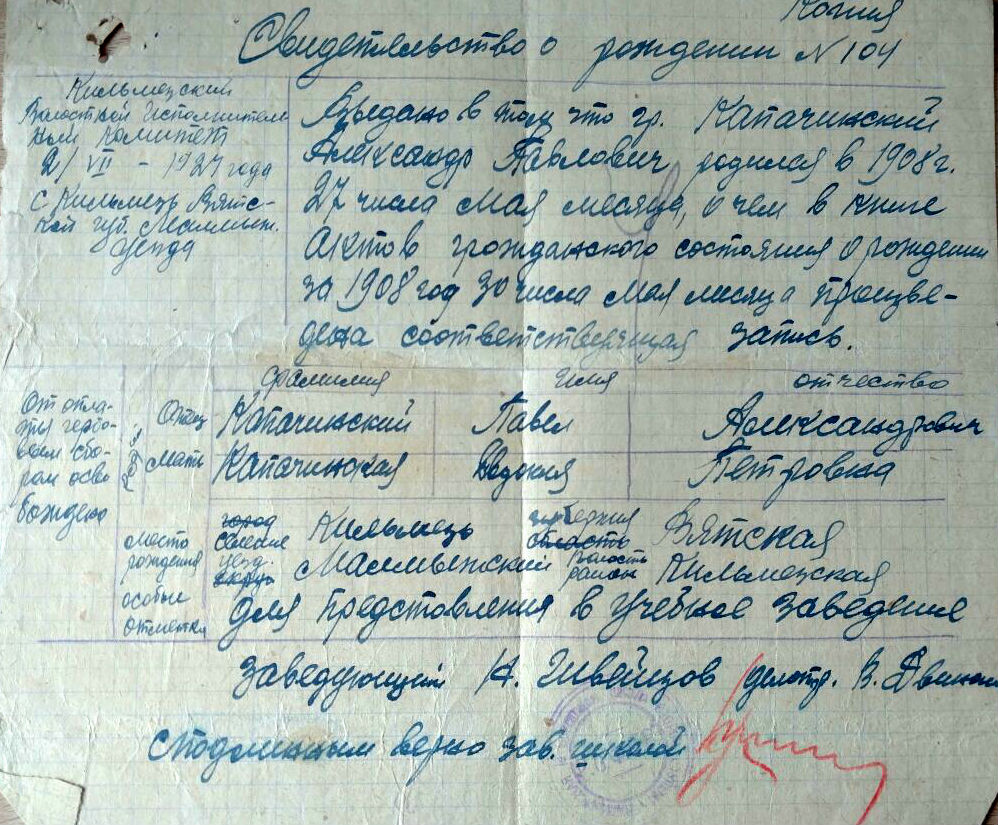 Копия
Свидетельство о рождении № 104
Кильмезский
Волостной Исполнитель
ный Комитет
2/VII - 1927 года
с Кильмезь Вятс-
кой губ. Малмыж.
Уезда
Выдано в том что гр. Капачинский
Александр Павлович родился в 1908 г.
27 числа Мая месяца, о чем в книге
Актов гражданского состояния о рождении
за 1908 год 30 числа Мая месяца произве-
дена соответствующая запись.
фамилия имя отчество
От опла-
ты гербо-
вым сбо-
ром осво
бождено
Отец Капачинский Павел Александрович
Мать Капачинская Евдокия Петровна
место
рождения
город
селение Кильмезь губерния
область Вятская
уезд
округ Малмыжский волость
район Кильмезская
особые
отметки
Для представления в Учебное Заведение
Заведующий А. Швейцов делопр. В. Двинян
с подлинным верно зав. школой